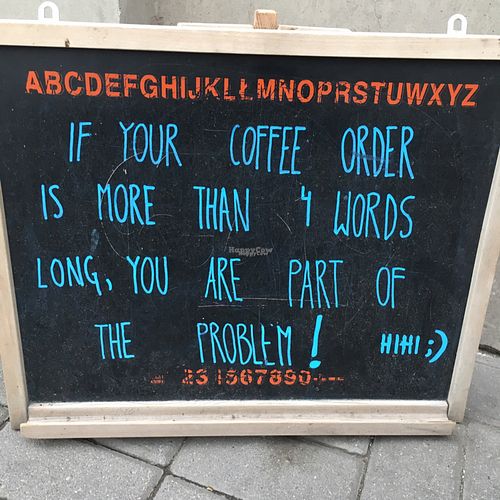 ABCDEFGHIJKLŁMNOPRSTUWXYZ
IF YOUR COFFEE ORDER
IS MORE THAN 4 WORDS
LONG, YOU ARE PART OF
THE PROBLEM! HIHI ;)
234567890
HappyCow